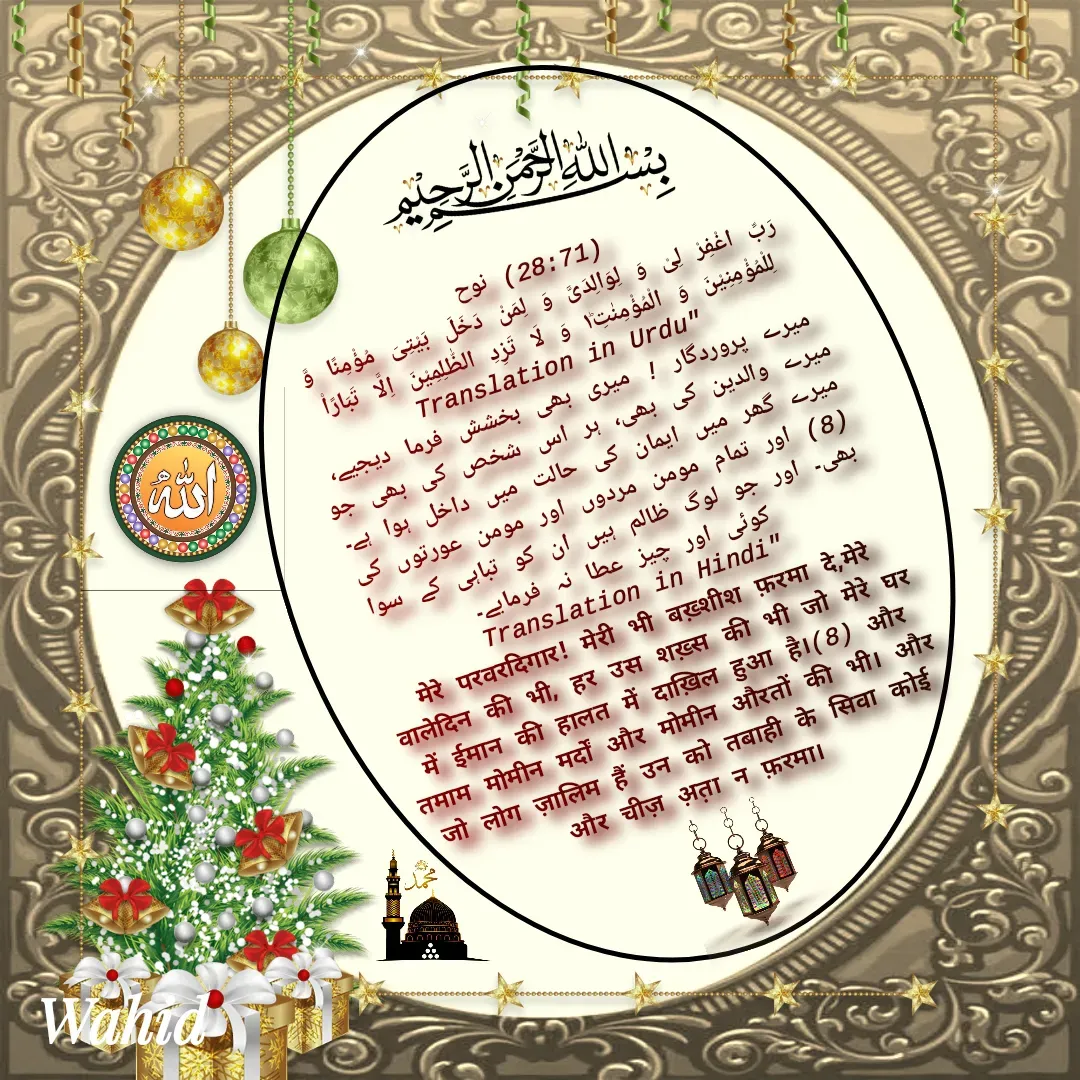 بِسْمِ اللهِ الرَّحْمٰنِ الرَّحِيْمِ
(28:71) نوح
رَبِّ اغْفِرْ لِیْ وَ لِوَالِدَیَّ وَ لِمَنْ دَخَلَ بَیْتِیَ مُؤْمِنًا وَّ
لِلْمُؤْمِنِیْنَ وَ الْمُؤْمِنٰتِؕ۱ وَ لَا تَزِدِ الظّٰلِمِیْنَ اِلَّا تَبَارًا۠
Translation in Urdu"
میرے پروردگار ! میری بھی بخشش فرما دیجیے،
میرے والدین کی بھی، ہر اس شخص کی بھی جو
میرے گھر میں ایمان کی حالت میں داخل ہوا ہے۔
(8) اور تمام مومن مردوں اور مومن عورتوں کی
بھی۔ اور جو لوگ ظالم ہیں ان کو تباہی کے سوا
کوئی اور چیز عطا نہ فرمایے۔
Translation in Hindi"
मेरे परवरदिगार! मेरी भी बख़्शीश फ़रमा दे,मेरे
वालेदिन की भी, हर उस शख़्स की भी जो मेरे घर
में ईमान की हालत में दाख़िल हुआ है।(8) और
तमाम मोमीन मर्दों और मोमीन औरतों की भी। और
जो लोग ज़ालिम हैं उन को तबाही के सिवा कोई
और चीज़ अ़त़ा न फ़रमा।
الله
محمد
Wahid